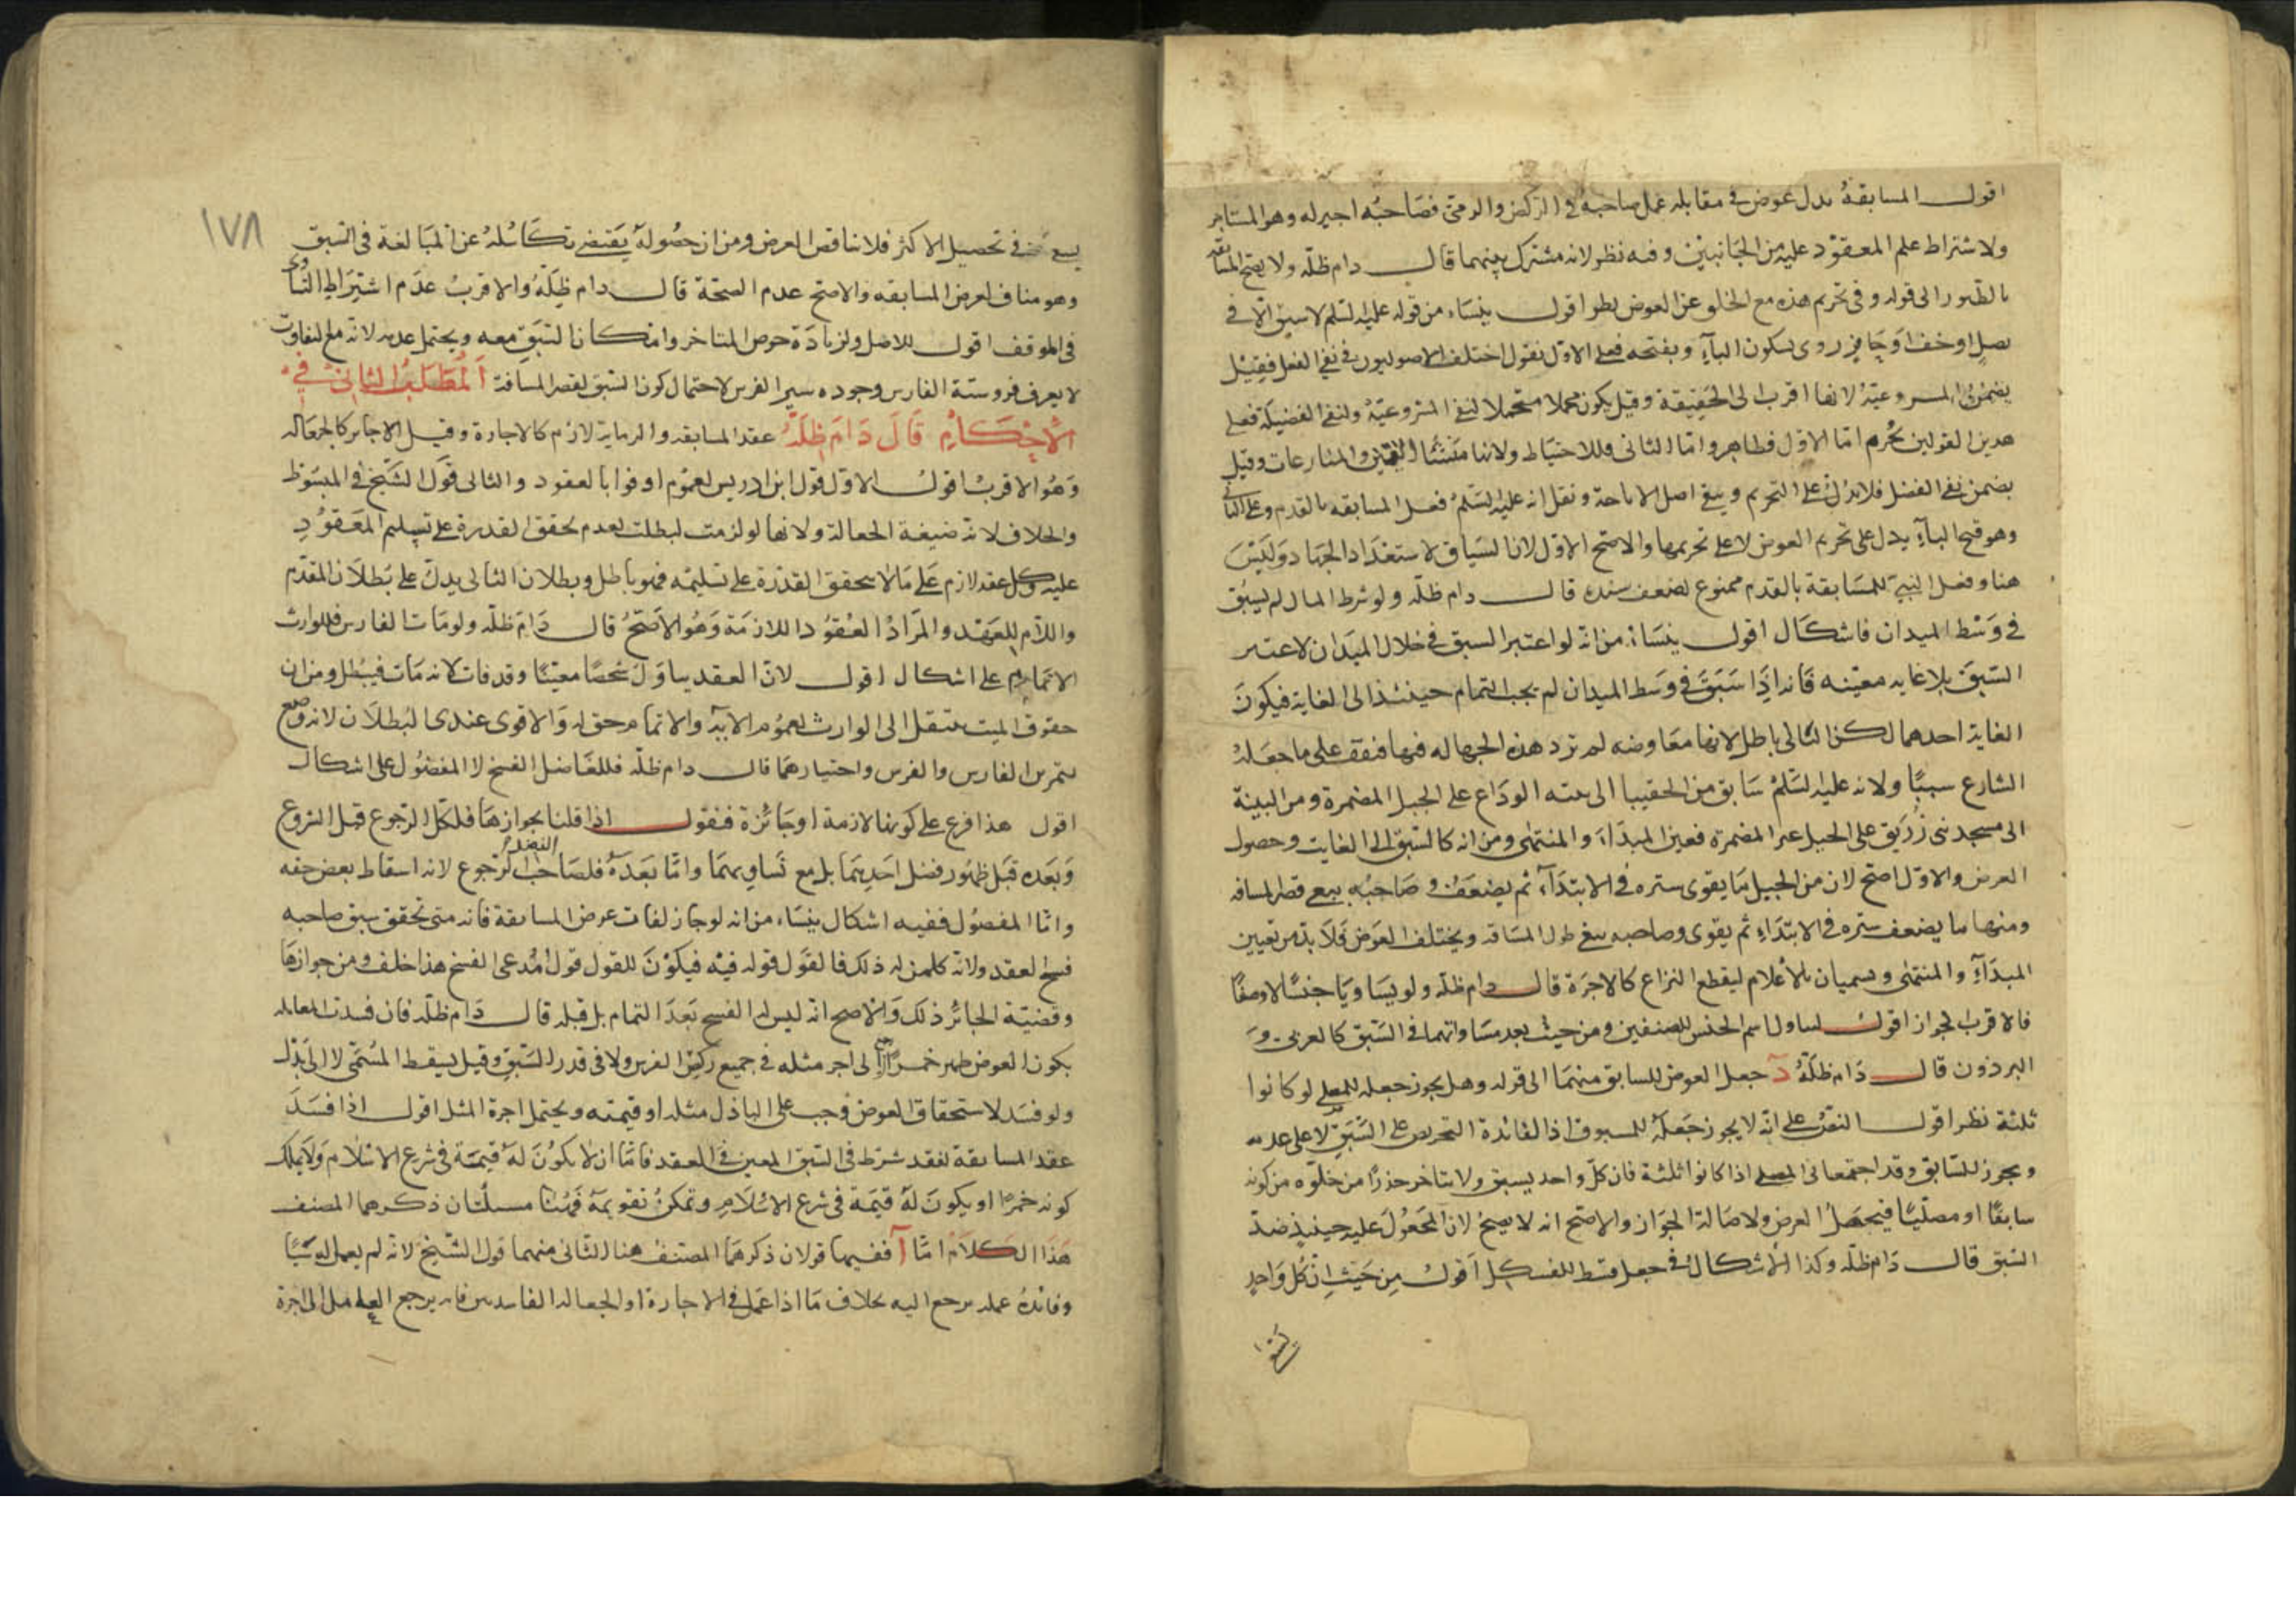 اقول المسابقة بدل عوض في مقابله عمل صاحبه في الركض والرمى فصاحبه اجير له وهو المستاجر
ولاشتراط علم المعقود عليه من الجانبين وفيه نظر لانه مشترك بينهما قال دام ظله ولا يصح المسابقة
بالطيور الى قوله وفى تحريم هذه مع الخلو عن العوض نظر اقول ينشاء من قوله عليه السلم لا سبق الا في
نصل او خف او حافر روى بسكون الباء وبفتحه فعلى الاول نقول اختلف الاصوليون في نفى الفعل فقيل
يضمن المشروعية لانها اقرب الى الحقيقة وقيل يكون مجملا متحملا لنفى المشروعية ولنفى الفضيلة فعلى
هدين القولين يحرم اما الاول فظاهر واما الثانى فللاحتياط ولانها منشأ الفتن والمنازعات وقيل
يضمن نفى الفضل فلا يدل على التحريم ويبقى اصل الاباحة ونقل انه عليه السلم فعل المسابقه بالقدم وعلى الثانى
وهو فتح الباء يدل على تحريم العوض لا على تحريمها والاصح الاول لان السياق لاستعداد الجهاد وليس
هنا وفعل النبى للمسابقة بالقدم ممنوع لضعف سنده قال دام ظله ولو شرط المال لم يسبق
في وسط الميدان فاشكال اقول ينشاء من انه لو اعتبر السبق في خلال الميدان لاعتبر
السبق بلا غايه معينه فانه اذا سبق في وسط الميدان لم يجب التمام حينئذ الى الغاية فيكون
الغاية احدهما لكن التالى باطل لانها معاوضه لم ترد هذه الجهاله فيها فنقف على ما جعله
الشارع سببا ولانه عليه السلم سابق من الحفيا الى ثنيه الوداع على الخيل المضمرة ومن الثنية
الى مسجد بنى زريق على الخيل غير المضمرة فعين المبداء والمنتهى ومن انه كالسبق الى الغايت وحصول
الغرض والاول اصح لان من الخيل ما يقوى سيره في الابتداء ثم يضعف وصاحبه يبغى قصر المسافه
ومنها ما يضعف سيره في الابتداء ثم يقوى وصاحبه يبغى طول المسافه ويختلف الغرض فلا بد من تعيين
المبداء والمنتهى ويسميان بالاعلام ليقطع النزاع كالاجرة قال دام ظله ولو تساويا جنسا لا وصفا
فالاقرب الجواز اقول لتناول اسم الجنس للصنفين ومن حيث بعد مساواتهما في السبق كالعربى و
البرذون قال دام ظله د جعل العوض للسابق منهما الى قوله وهل يجوز جعله للمصلى لو كانوا
ثلثة نظر اقول النص على انه لا يجوز جعله للمسبوق اذ الفائدة التحريص على السبق لا على عدمه
ويجوز للسابق وقد اجتمعا فى المصلى اذا كانوا ثلثة فان كل واحد يسبق ولا يتاخر حذرا من خلوه من كونه
سابقا او مصليا فيحصل الغرض ولاصالة الجواز والاصح انه لا يصح لان المجعول عليه حينئذ ضد
السبق قال دام ظله وكذا الاشكال في جعل قسط للفسكل اقول من حيث ان كل واحد
١٧٨
يسعى في تحصيل الاكثر فلا يناقض الغرض ومن ان حصوله يقتضى تكاسله عن المبالغة في السبق
وهو مناف لغرض المسابقه والاصح عدم الصحة قال دام ظله والاقرب عدم اشتراط التساوى
في الموقف اقول للاصل ولزيادة حرص المتاخر وامكان السبق معه ويحتمل عدمه لانه مع التفاوت
لا يعرف فروسية الفارس وجوده سير الفرس لاحتمال كون السبق لقصر المسافة المطلب الثانى في
الاحكام قال دام ظله عقد المسابقه والرمايه لازم كالاجارة وقيل الاجائز كالجعاله
وهو الاقرب اقول الاول قول ابن ادريس لعموم اوفوا بالعقود والثانى قول الشيخ في المبسوط
والخلاف لانه ضيغة الجعالة ولانها لو لزمت لبطلت لعدم تحقق القدرة على تسليم المعقود
عليه وكل عقد لازم على ما لا يتحقق القدرة على تسليمه فهو باطل وبطلان التالى يدل على بطلان المقدم
واللام للعهد والمراد العقود اللازمة وهو الاصح قال دام ظله ولو مات الفارس فللوارث
الاتمام على اشكال اقول لان العقد يتناول شخصا معينا وقد فات لانه مات فيبطل ومن ان
حقوق الميت ينتقل الى الوارث لعموم الايه والاتمام حق له والاقوى عندى البطلان لانه وضع
لتمرين الفارس والفرس واختيارهما قال دام ظله فللفاضل الفسخ لا المفضول على اشكال
اقول هذا فرع على كونها لازمة او جائزة فنقول اذا قلنا بجوازها فلكل الرجوع قبل الشروع
وبعده قبل ظهور فضل احديهما بل مع تساويهما واما بعده فلصاحب الفضل الرجوع لانه اسقاط بعض حقه
واما المفضول ففيه اشكال ينشاء من انه لو جاز لفات غرض المسابقة فانه متى تحقق سبق صاحبه
فسخ العقد ولانه كلمن له ذلك فالقول قوله فيه فيكون للقول قول مدعى الفسخ هذا خلف ومن جوازها
وقضية الجائز ذلك والاصح انه ليس له الفسخ بعد التمام بل قبله قال دام ظله فان فسدت المعامله
بكون العوض ظهر خمرا رجع الى اجر مثله في جميع ركض الفرس ولا في قدر السبق وقيل يسقط المسمى لا الى بدل
ولو فسد لاستحقاق العوض وجب على الباذل مثله او قيمته ويحتمل اجرة المثل اقول اذا فسد
عقد المسابقة لفقد شرط في السبق المعين في العقد فاما ان لا يكون له قيمة في شرع الاسلام ولا يملك
كونه خمرا او يكون له قيمة في شرع الاسلام وتمكن تقويمه فهنا مسئلتان ذكرهما المصنف
هذا الكلام اما آ ففيها قولان ذكرهما المصنف هنا الثانى منهما قول الشيخ لانه لم يعمل له شيئا
وفائدة عمله يرجع اليه بخلاف ما اذا عمل في الاجارة او الجعاله الفاسدين فانه يرجع العامل الى اجرة